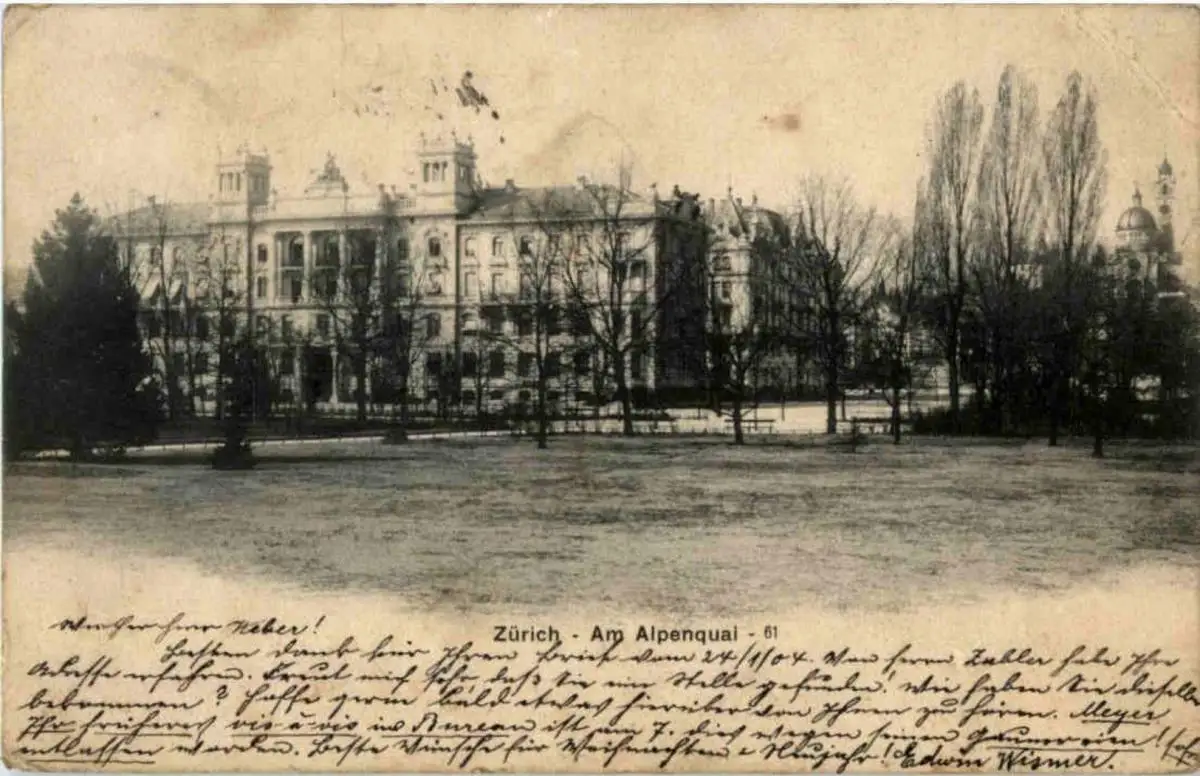 Werther Herr Neber!
Zürich - Am Alpenquai - 61
Besten Dank für Ihren Brief vom 24/1/04. Von Herrn Zubler habe Ihre
Adresse erfahren. Freut mich sehr daß Sie eine Stelle gefunden. Wie haben Sie dieselbe
bekommen? Hoffe gern bald etwas hierüber von Ihnen zu hören. Meyer
Ihr früheres vis-à-vis im Bureau ist am 7. dies wegen seinen Gaunereien!
entlassen worden. Beste Wünsche für Weihnachten & Neujahr! Edwin Wismer.